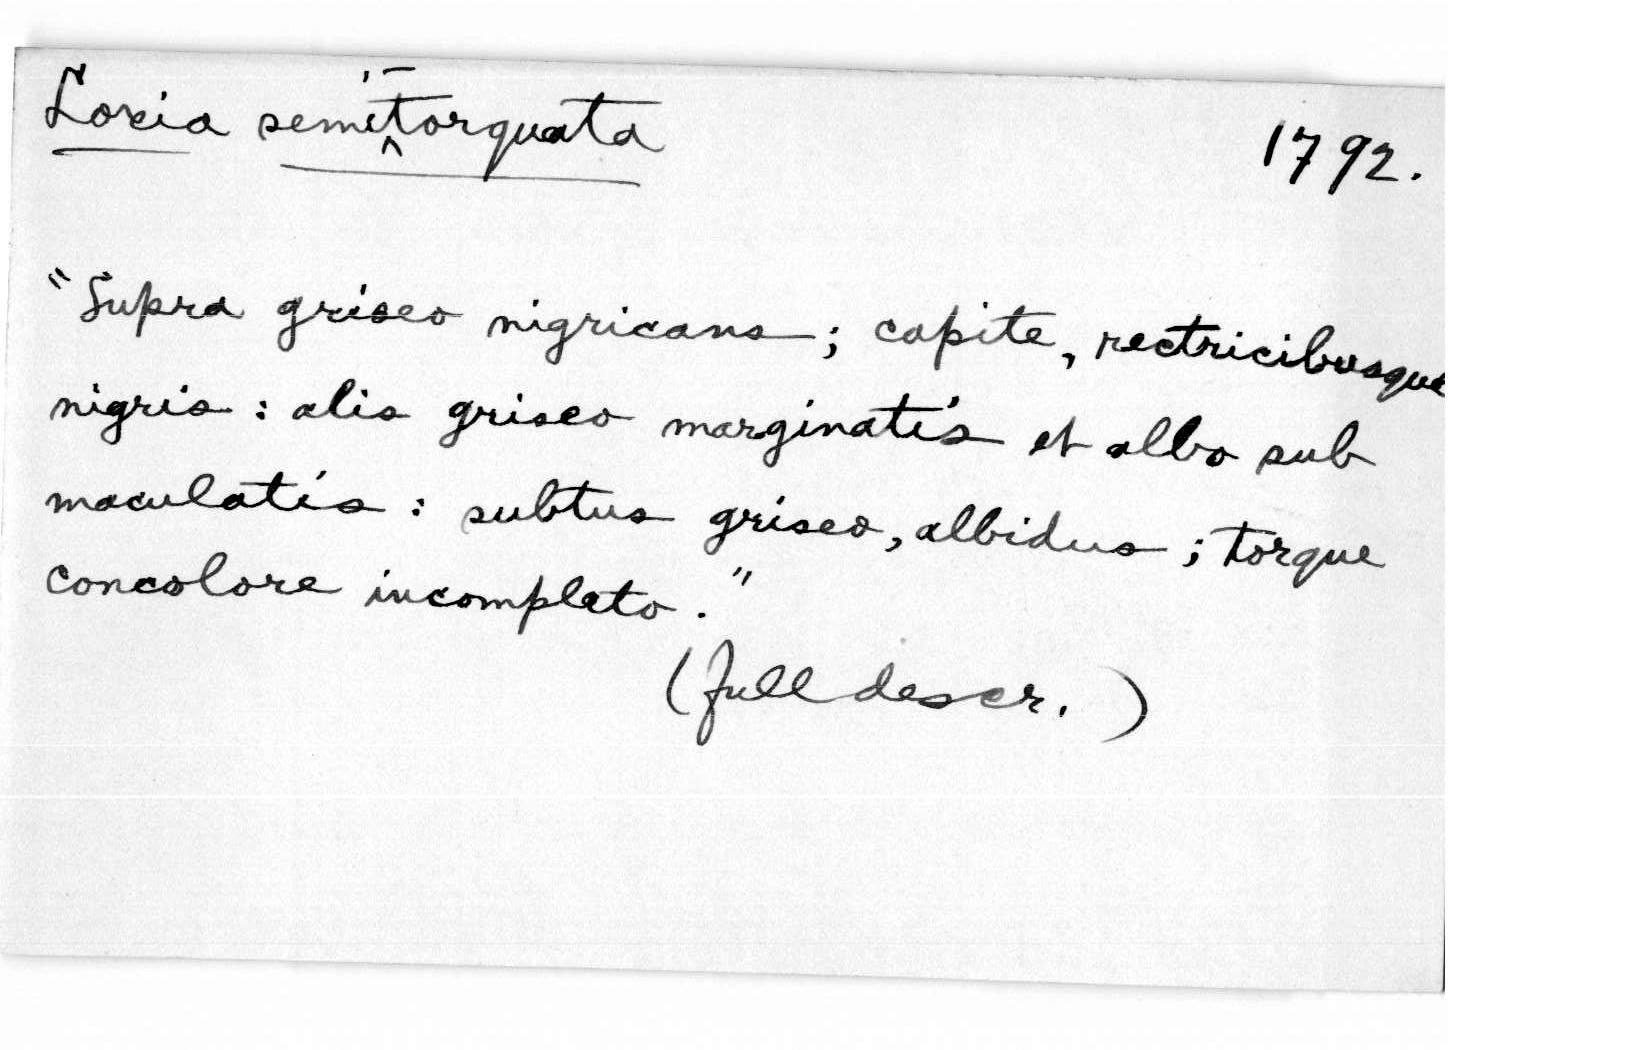 Loxia semi-torquata 1792.
"Supra griseo nigricans; capite, rectricibusque
nigris: alis griseo marginatis et albo sub
maculatis: subtus griseo, albidus; torque
concolore incompleto."
(full descr.)